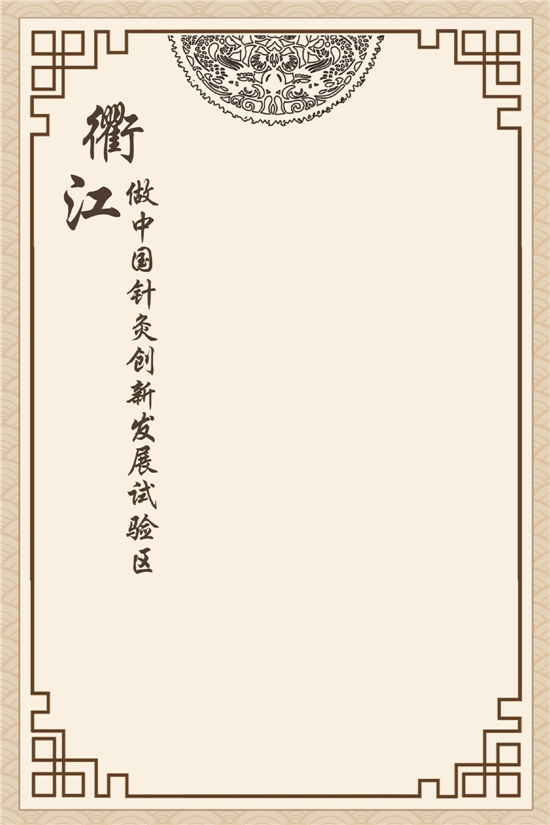 衢江
做中国针灸创新发展试验区